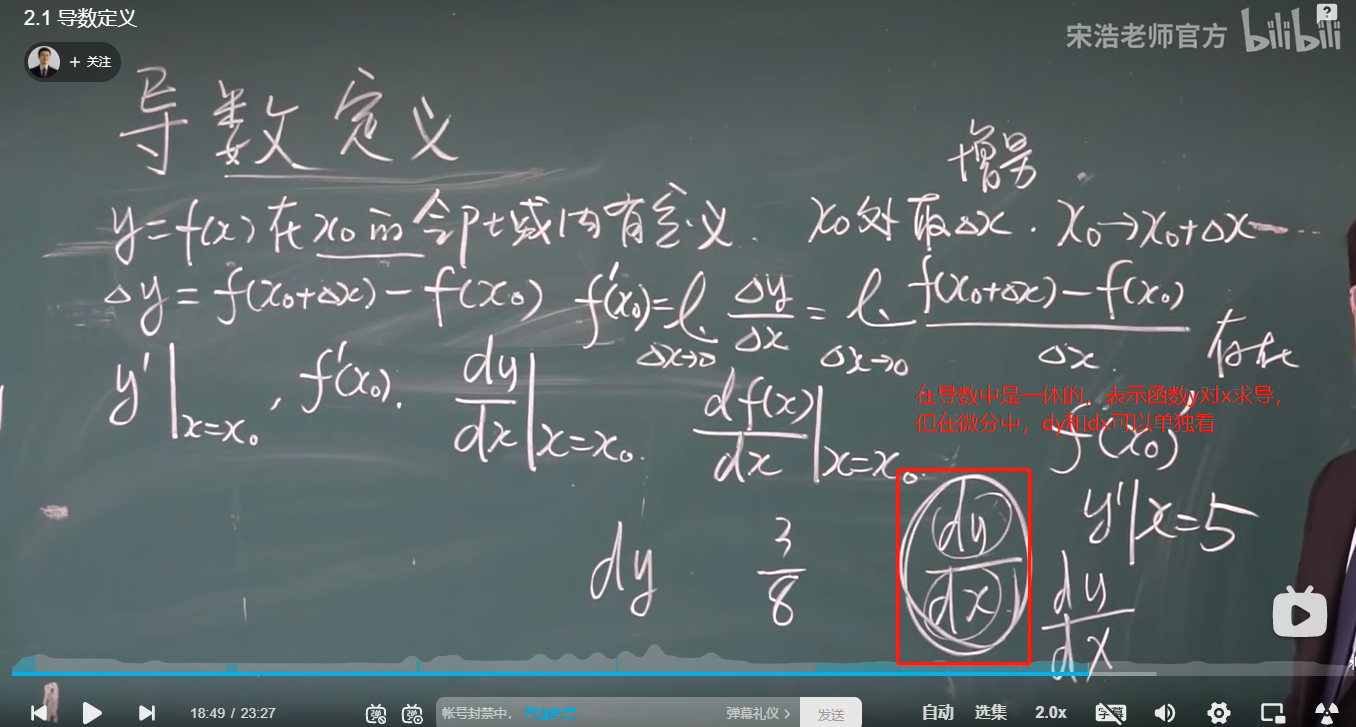 2.1 导数定义
宋浩老师官方 bilibili
+ 关注
导数定义
增量
y=f(x)在x₀的邻域内有定义. x₀处取△x. x₀→x₀+△x
△y=f(x₀+△x)-f(x₀) f'(x₀)=l. △y/△x = l. f(x₀+△x)-f(x₀)/△x 存在
△x→0 △x→0
y'|x=x₀, f'(x₀). dy/dx|x=x₀. df(x)/dx|x=x₀.
在导数中是一体的，表示函数y对x求导，
但在微分中，dy和dx可以单独看
f'(x₀)
y'|x=5
dy 3/8 dy/dx dy/dx
18:49 / 23:27
弹
弹
帐号封禁中，
弹幕礼仪 >
发送
自动
选集
2.0x
字幕